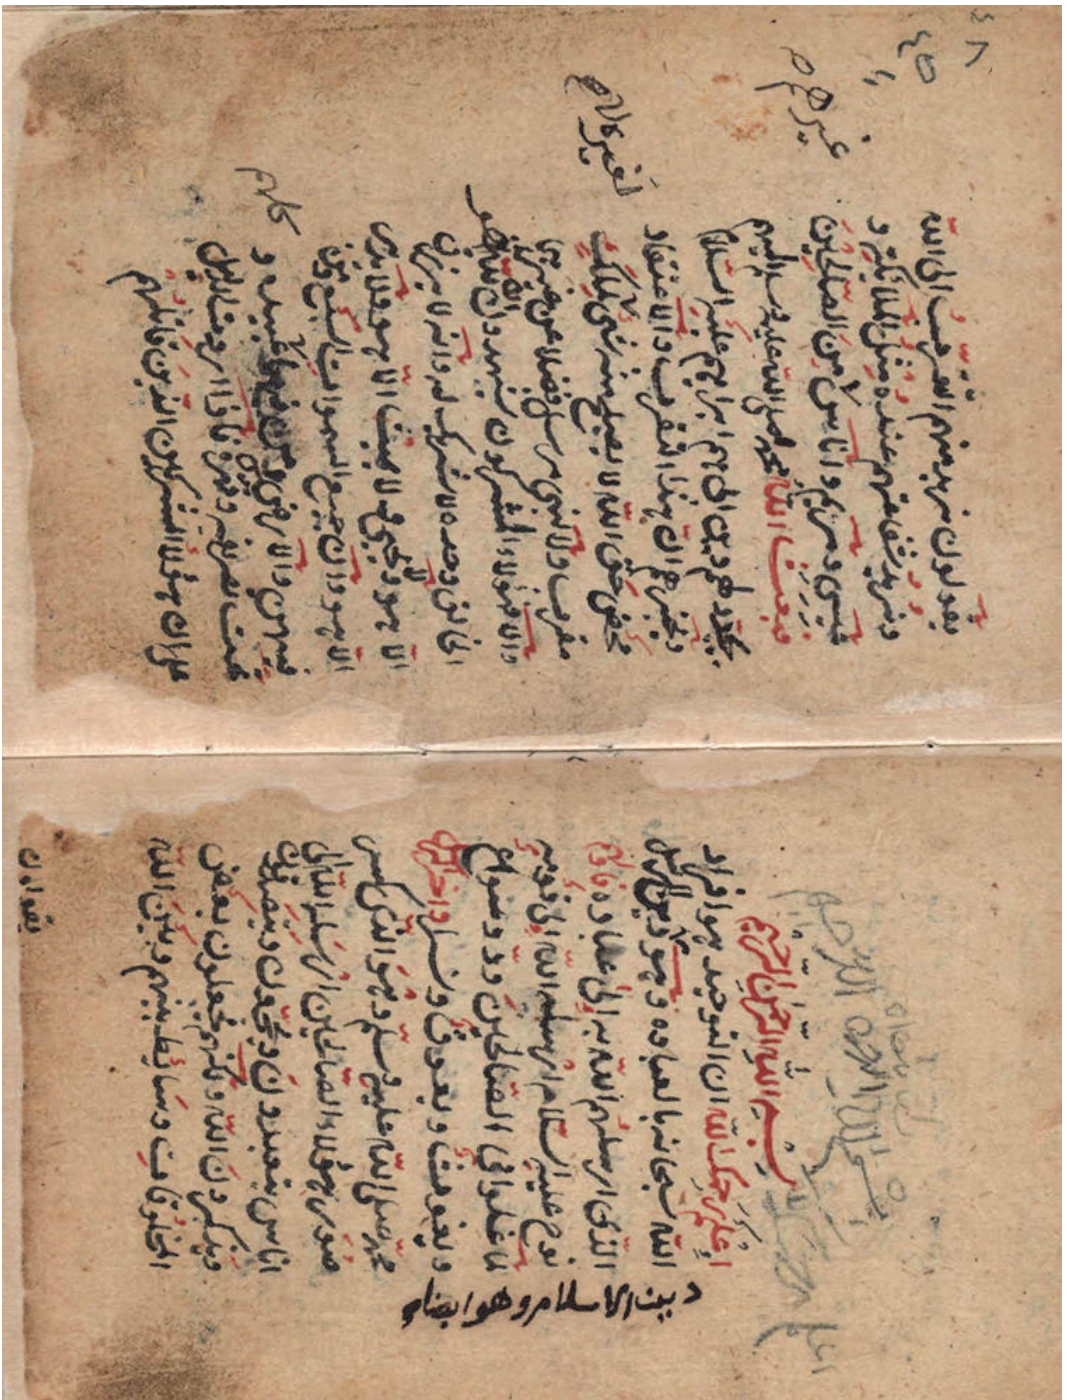 ٤٨
٤٥
بسم الله الرحمن الرحيم
بسم الله الرحمن الرحيم
اعلم رحمك الله ان التوحيد هو افراد
الله سبحانه بالعباده وهو دين الرسل
الذي ارسلهم الله به الى عباده فاولهم
نوح عليه السلام ارسله الله الى قومه
لما غلوا في الصالحين ود وسواع
ويغوث ويعوق ونسرا واخر الرسل
محمد صلى الله عليه وسلم وهو الذي كسر
صور هؤلاء الصالحين ارسله الله الى
اناس يتعبدون ويحجون ويتصدقون
ويذكرون الله ولكنهم يجعلون بعض
المخلوقات وسائط بينهم وبين الله
يقولون
دين الاسلام وهو
يقولون نريد منهم التقرب الى الله
ونريد شفاعتهم عنده مثل الملائكة و
عيسى ومريم واناس من الصالحين
فبعث الله محمد صلى الله عليه وسلم اليهم
يجدد لهم دين ابيهم ابراهيم عليه السلام
ويخبرهم ان هذا التقرب والاعتقاد
محض حق الله لا يصلح منه شي لملك
مقرب ولا لنبي مرسل فضلا عن غيرهما
والا فهؤلاء المشركون يشهدون ان الله هو
الخالق وحده لا شريك له وانه لا يرزق
الا هو ولا يحيي ولا يميت الا هو ولا يدبر
الا هو وان جميع السموات السبع ومن
فيهن والارض ومن فيها عبيده و
تحت تصرفه وقهره فاذا اردت الدليل
على ان هؤلاء المشركين الذين قاتلهم
غيرهم
كلهم